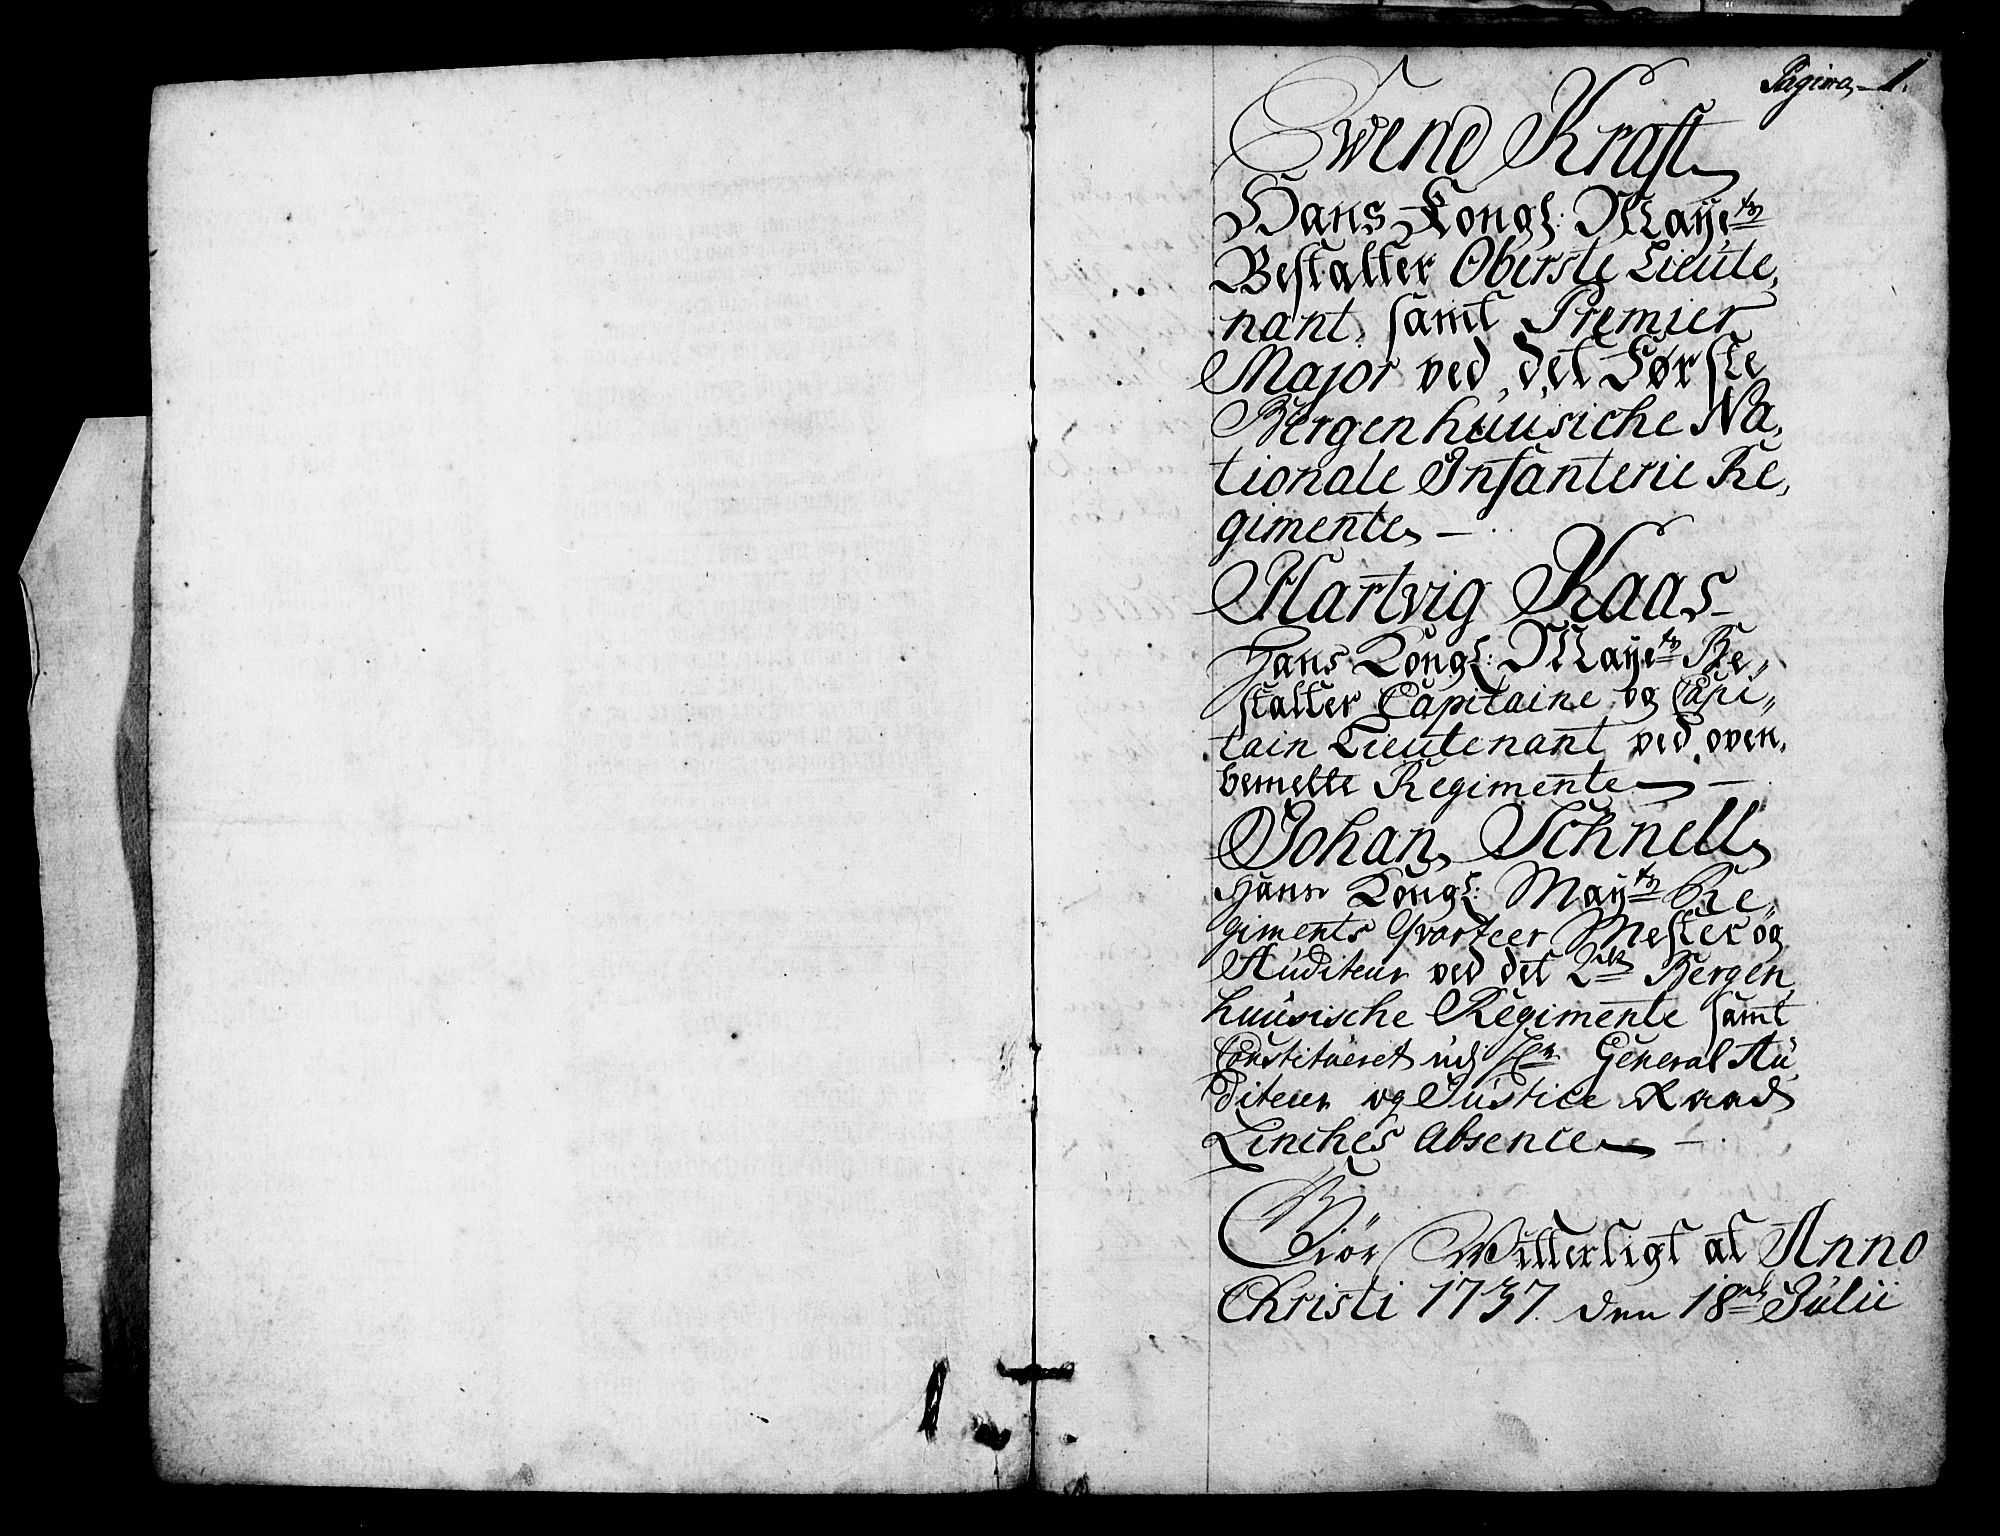 Pagina, 1.
Svend Kraft
Hans Kongl: Mayetz
Bestalter Oberste Lieute,
nant, samt Premier
Major ved det Første
Bergenhuusiche Na,
tionale Infanterie Re,
gimente —
Hartvig Kaas
Hans Kongl: Mayetz Be,,
stalter Capitaine og Capi,,
tain Lieutenant ved oven,
bemelte Regimente —
Johan Schnell
Hans Kongl: Maytz Re,,
giments Qvarteer Mester og
Auditeur ved det 2det Bergen,
huusische Regimente samt
Constitueret udj Hr General Au,
diteur og Justice Raad
Linches Absence — .
Giør Witterligt at Anno
Christi 1737. den 18de Julii